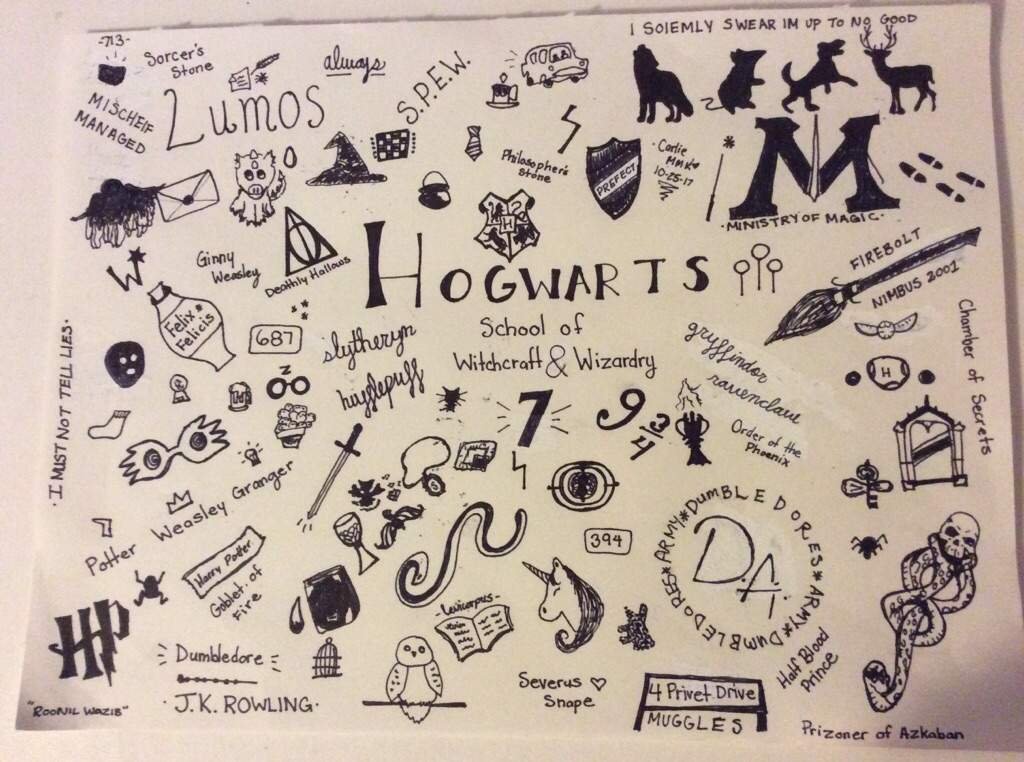 I SOlEMLY SWEAR IM UP TO NO GOOD
-713-
Sorcer's
Stone
always
S.P.E.W.
MISCHEIF
MANAGED
Lumos
Philosopher's
Stone
PREFECT
Carlie
MMK
10-25-17
M
·MINISTRY OF MAGIC·
W
Ginny
Weasley
Deathly Hallows
H
HOGWARTS
FIREBOLT
NIMBUS 2001
Felix
Felicis
687
School of
Witchcraft & Wizardry
slytheryn
hufflepuff
gryffindor
ravenclaw
H
Chamber of Secrets
·I MUST NOT TELL LIES·
7
9 3/4
Order of the
Phoenix
Weasley Granger
Potter
394
DUMBLEDORES*ARMY*DUMBLEDORES*ARMY*
D.A.
Harry Potter
Goblet of
Fire
HP
-Levicorpus-
Dumbledore
·J.K. ROWLING·
"ROONIL WAZIB"
Severus ♡
Snape
4 Privet Drive
MUGGLES
Half Blood
Prince
Prizoner of Azkaban